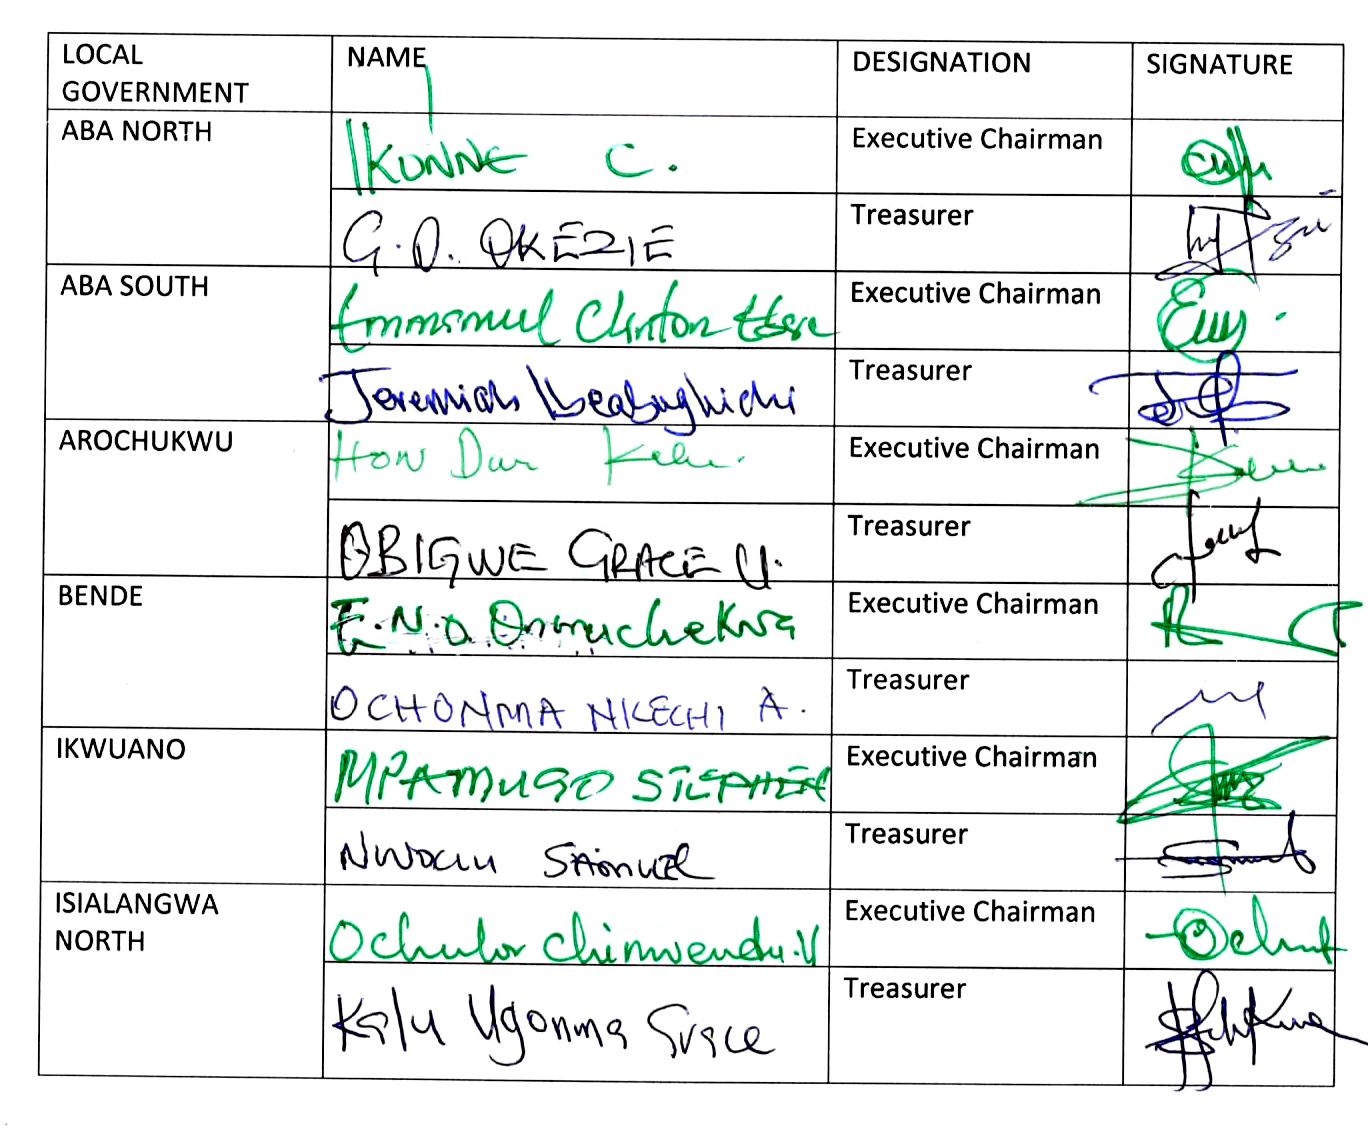 LOCAL GOVERNMENT NAME DESIGNATION SIGNATURE
ABA NORTH IKONNE C. Executive Chairman
G.O. OKEZIE Treasurer
ABA SOUTH Emmanuel Clinton Executive Chairman
Jeremiah Ikeabughichi Treasurer
AROCHUKWU HON Dan Kalu Executive Chairman
OBIGWE GRACE U. Treasurer
BENDE E.N.O. Onwuchekwa Executive Chairman
OCHONMA NKECHI A. Treasurer
IKWUANO MPAMUGO STEPHEN Executive Chairman
SAMUEL Treasurer
ISIALANGWA NORTH Ochulor Chinwendu.V Executive Chairman
Kalu Ugonma Grace Treasurer